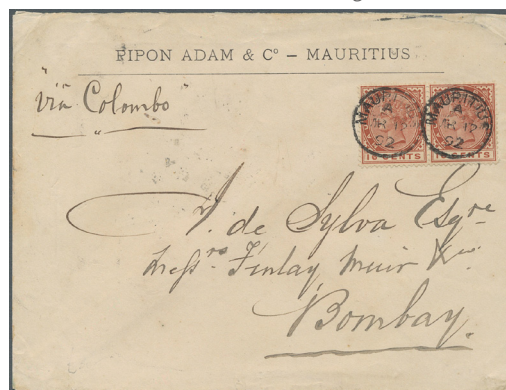 PIPON ADAM & Cº – MAURITIUS
"via Colombo"
MAURITIUS
A
17
92
MAURITIUS
A
17
92
16 CENTS
16 CENTS
J. de Sylva Esqre
Messrs Finlay Muir & Co.
Bombay.